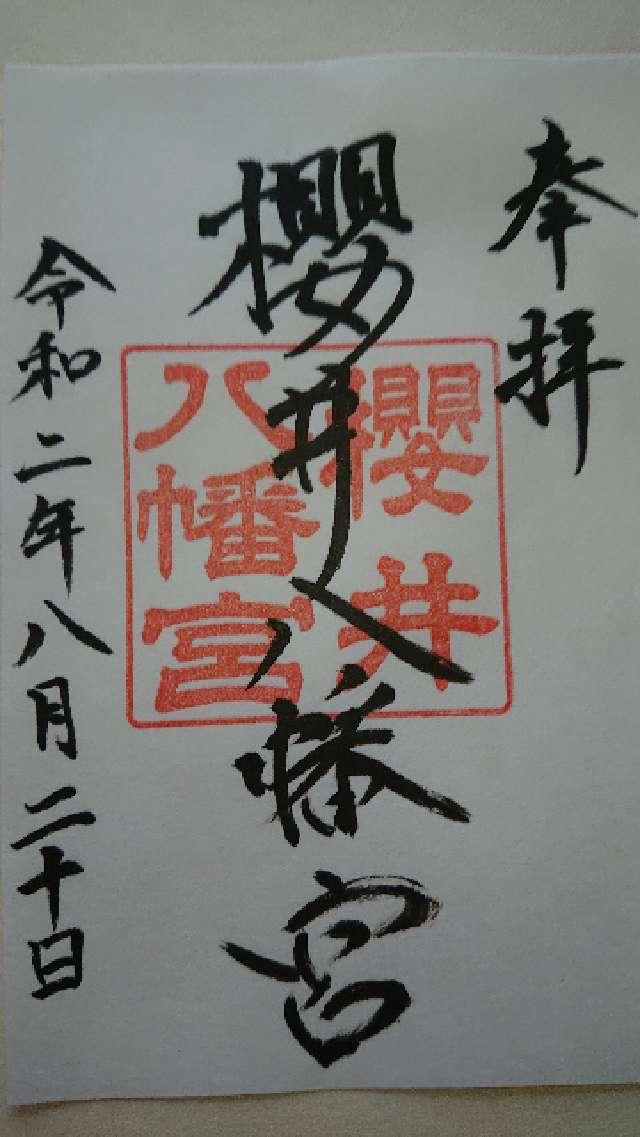 奉拝
櫻井八幡宮
櫻井
八幡宮
令和二年八月二十日